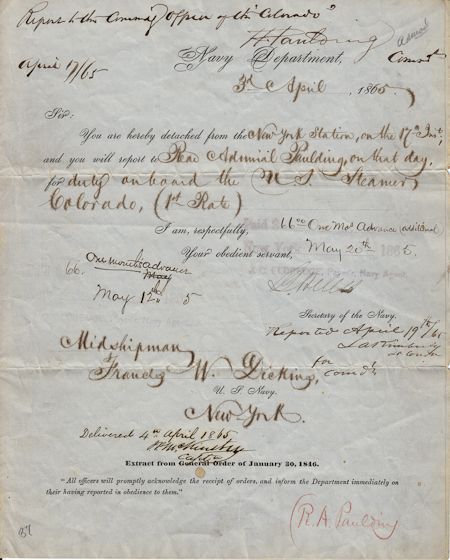 Report to the Comm'g Officer of the "Colorado"
H Paulding
Admiral
April 17/65
Navy Department,
Com'd't
3d April, 1865
Sir:
You are hereby detached from the New York Station, on the 17th Inst;
and you will report to Rear Admiral Paulding, on that day,
for duty on board the U. S. Steamer
Colorado, (1st Rate)
I am, respectfully,
66 00 One Mos Advance additional
Your obedient servant,
May 20th 1865.
One months advance
66.
May
May 12th 5
G Welles
Secretary of the Navy.
Reported April 19th/65
for
Midshipman
Francis W. Dicking,
U. S. Navy.
New York.
Delivered 4th April 1865
Capt
Extract from General Order of January 30, 1846.
"All officers will promptly acknowledge the receipt of orders, and inform the Department immediately on
their having reported in obedience to them."
R. A. Paulding